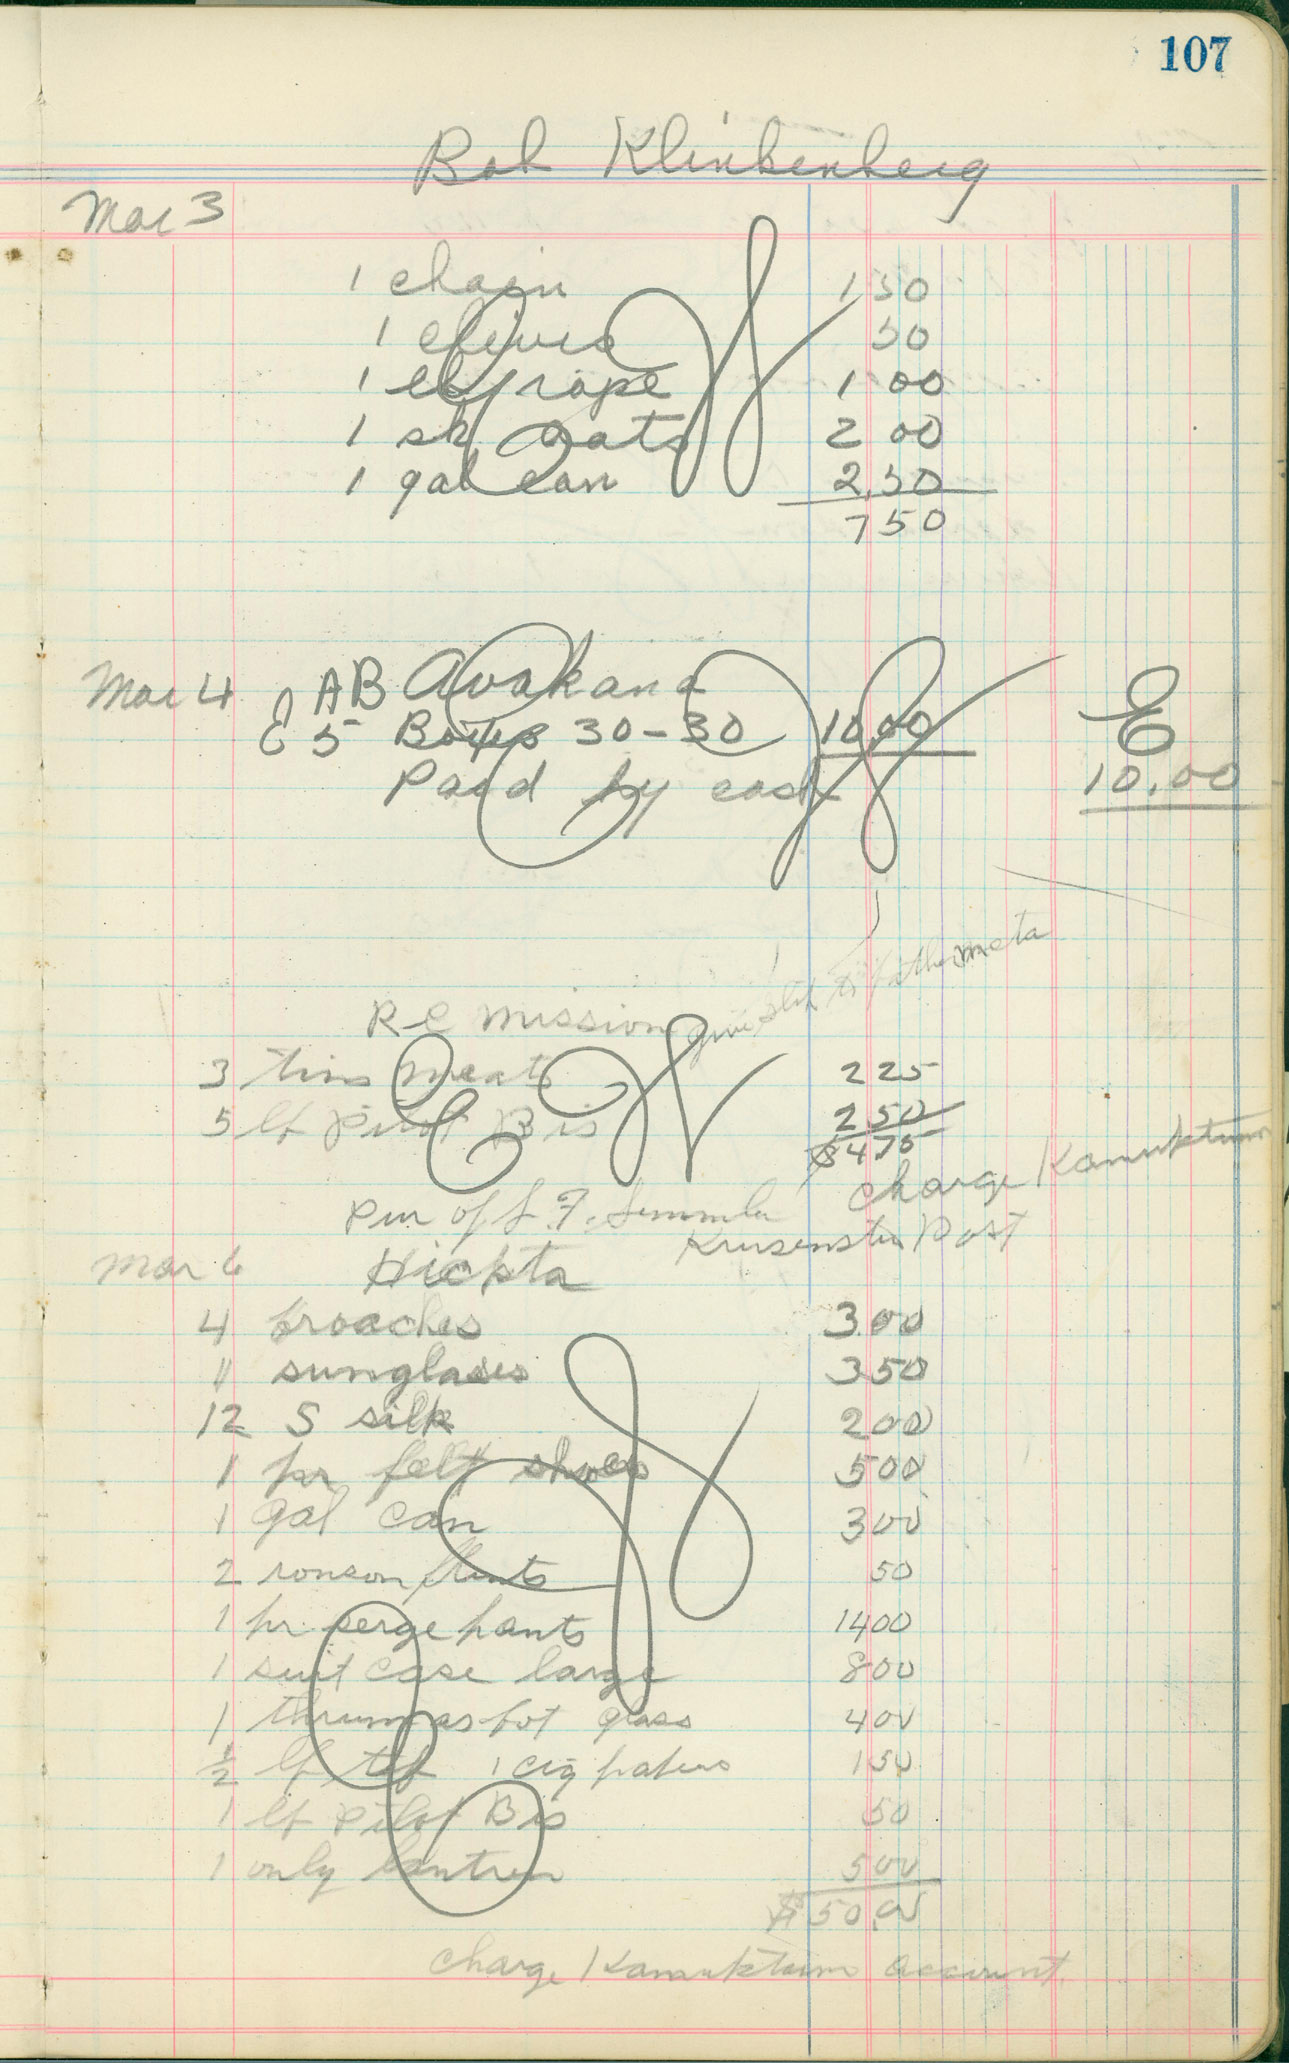 107
Bob Klinkenberg
Mar 3
1 chain 1 50
1 clevis 50
1 lb rope 1 00
1 sk oats 2 00
1 gal can 2.50
7 50
Mar 4 AB Avakana E
5 Boxes 30-30 10.00
Paid by cash 10.00
R C Mission give slip to
3 tins meat 2 25
5 lb Pilot Bis 2 50
$ 4 75
charge Kamuktum
Pur of L. F. Semmler
Krusenstern Post
Mar 6 Hickta
4 broaches 3.00
11 sunglasses 3 50
12 S silk 2 00
1 pr felt shoes 5 00
1 gal can 3 00
2 ronson flints 50
1 pr serge pants 14 00
1 suit case large 8 00
1 thrumas bot glass 4 00
1/2 lb tob 1 cig papers 1 50
1 lb Pilot Bis 50
1 only lantren 5 00
$ 50.00
charge Kamuktum account.